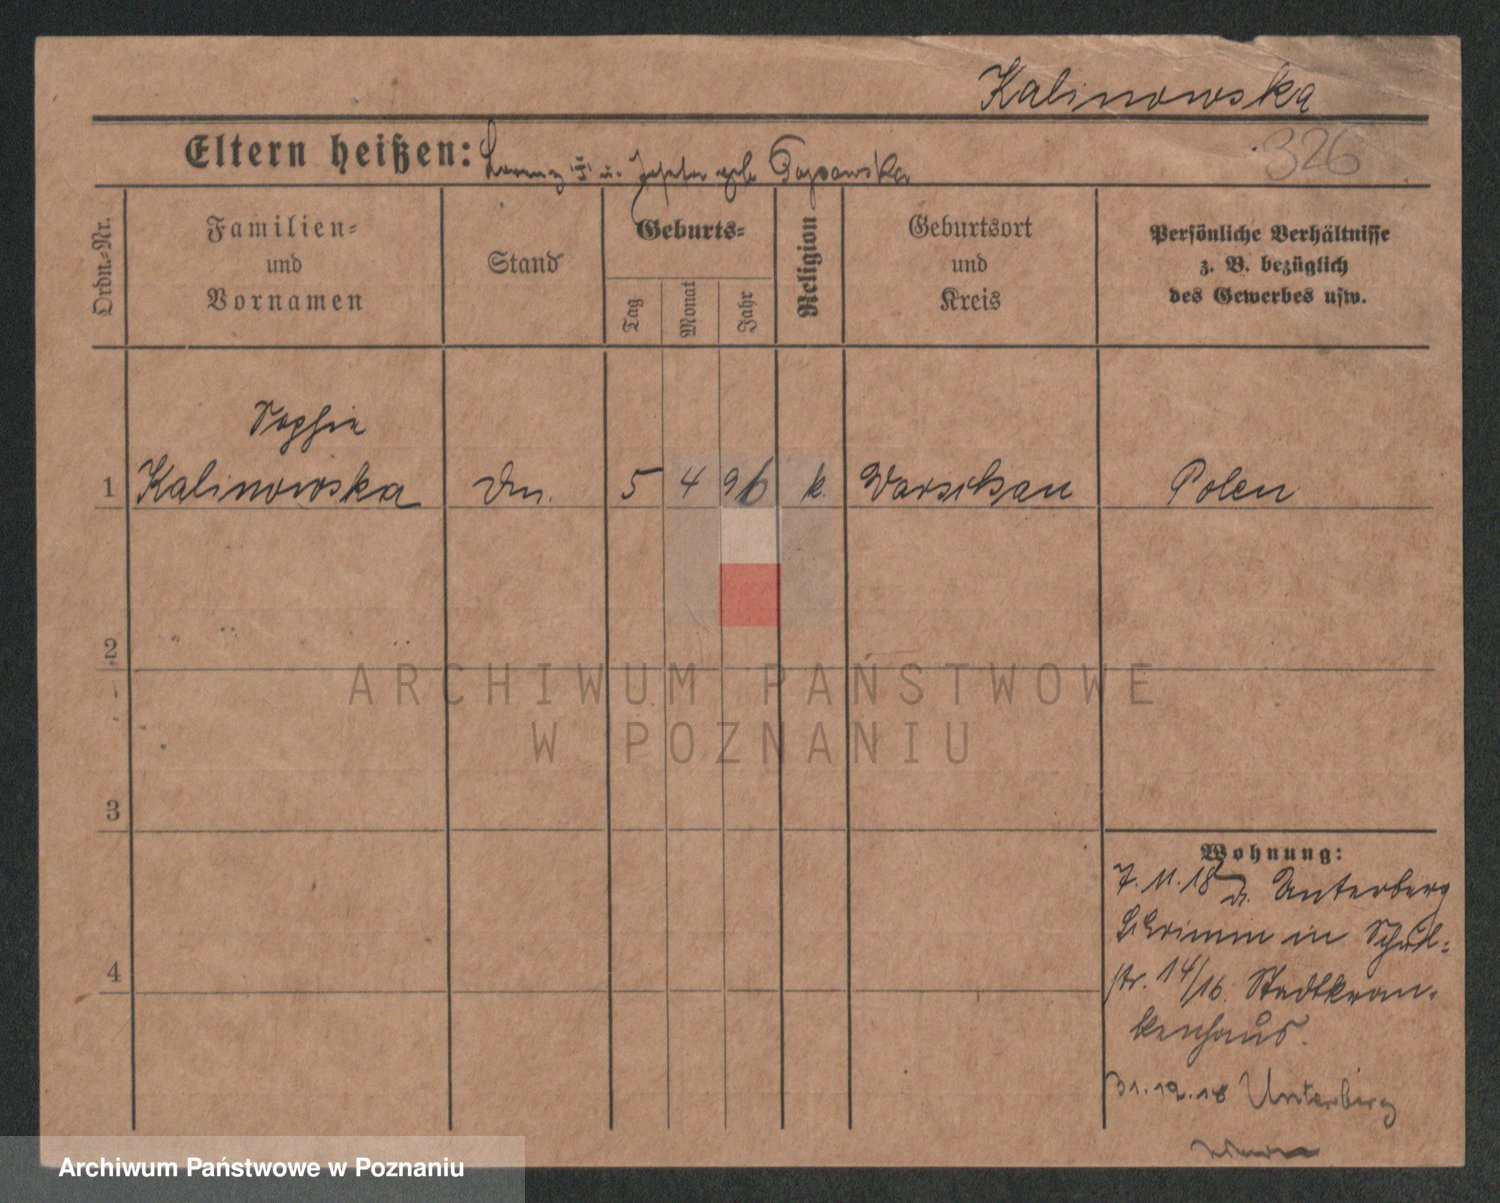 Kalinowska
326
Eltern heißen: Lorenz † u. Josefa geb.
Ordn.=Nr.
Familien=
und
Vornamen
Stand
Geburts=
Tag
Monat
Jahr
Religion
Geburtsort
und
Kreis
Persönliche Verhältnisse
z. B. bezüglich
des Gewerbes usw.
Sophie
1 Kalinowska 5 4 96 k. Polen
2
3
4
Wohnung:
7.11.18 Unterberg
Schrimm in Schul=
str. 14/16. Stadtkran=
kenhaus.
31.12.18 Unterberg
ARCHIWUM PAŃSTWOWE
W POZNANIU
Archiwum Państwowe w Poznaniu